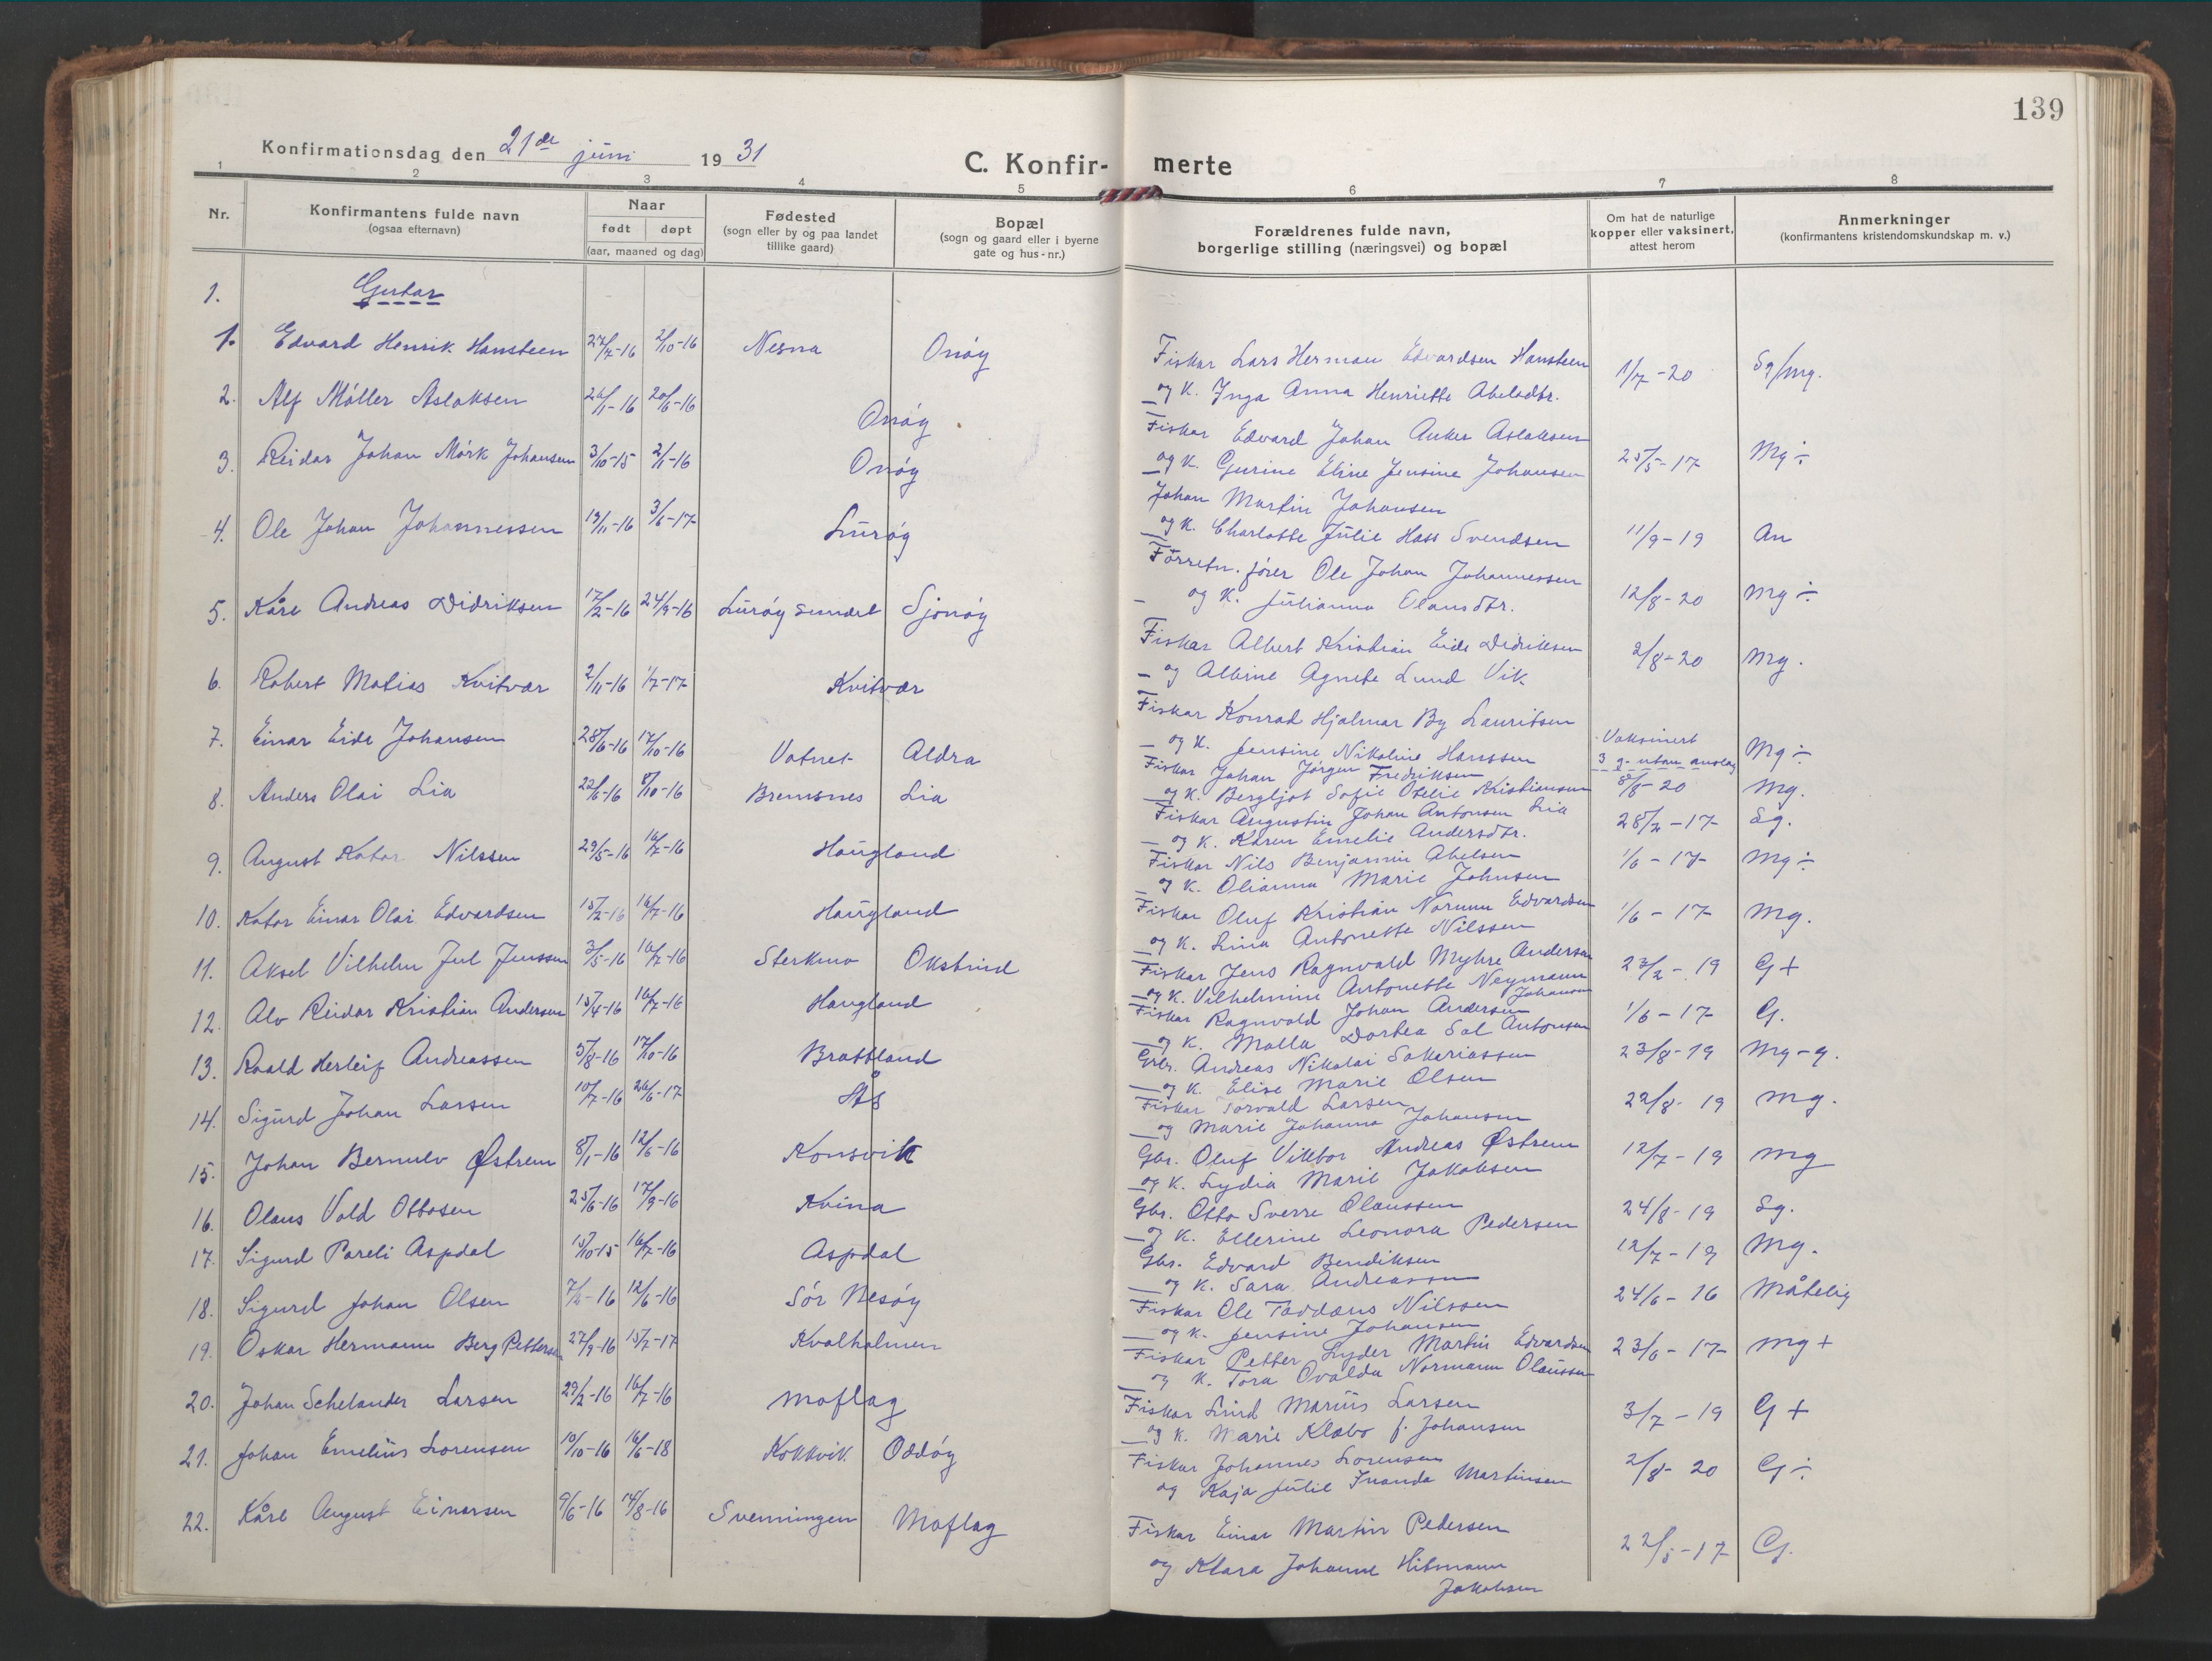 139
Konfirmationsdag den 21de juni 1931
C. Konfir- merte
1 2 3 4 5 6 7 8
Nr.
Konfirmantens fulde navn
(ogsaa efternavn)
Naar
født døpt
(aar, maaned og dag)
Fødested
(sogn eller by og paa landet
tillike gaard)
Bopæl
(sogn og gaard eller i byerne
gate og hus-nr.)
Forældrenes fulde navn,
borgerlige stilling (næringsvei) og bopæl
Om hat de naturlige
kopper eller vaksinert,
attest herom
Anmerkninger
(konfirmantens kristendomskundskap m. v.)
1. Gutar
1. Edvard Henrik Hansteen 27/7-16 2/10-16 Nesna Onøy
Fiskar Lars Herman Edvardsen Hansteen
og K. Inga Anna Henriette Abelsdtr. 1/7-20 Sg/mg.
2. Alf Møller Aslaksen 26/1-16 20/6-16 Onøy
Fiskar Edvard Johan Anker Aslaksen
og K. Gurine Eline Jensine Johansen 25/5-17 Mg÷
3. Reidar Johan Mørk Johansen 3/10-15 2/1-16 Onøy
Johan Martin Johansen
og K. Charlotte Julie Hass Svendsen 11/9-19 An
4. Ole Johan Johannessen 19/11-16 3/6-17 Lurøy
Forretn. fører Ole Johan Johannessen
og K. Julianna Olausdtr. 12/8-20 mg÷
5. Kåre Andreas Didriksen 17/2-16 24/9-16 Lurøy sundet Sjonøy
Fiskar Albert Kristian Eide Didriksen
og Albine Agnete Lund Vik 2/8-20 mg.
6. Robert Matias Kvitvær 2/11-16 1/7-17 Kvitvær
Fiskar Konrad Hjalmar By Lauritsen
og K. Jensine Nikoline Hanssen Vaksinert
3 g. utan anslag Mg÷
7. Einar Eide Johansen 28/6-16 17/10-16 Vatnet Aldra
Fiskar Johan Jørgen Fredriksen
og K. Bergljot Sofie Otelie Kristiansen 8/8-20 Mg.
8. Anders Olai Lia 22/6-16 8/10-16 Bremsnes Lia
Fiskar Augustin Johan Antonsen Lia
og K. Karen Emelie Andersdtr. 28/2-17 Sg.
9. August Kator Nilssen 29/5-16 16/7-16 Haugland
Fiskar Nils Benjamin Abelsen
og K. Olianna Marie Johnsen 1/6-17 mg÷
10. Kator Einar Olai Edvardsen 15/2-16 16/7-16 Haugland
Fiskar Oluf Kristian Norum Edvardsen
og K. Lina Antonette Nilssen 1/6-17 mg.
11. Aksel Vilhelm Jul Jenssen 3/5-16 16/7-16 Sterkmo Okstind
Fiskar Jens Ragnvald Myhre Andersen
og K. Vilhelmine Antonette Neymann
Johansen 23/2-19 G+
12. Alv Reidar Kristian Andersen 15/4-16 16/7-16 Haugland
Fiskar Ragnvald Johan Andersen
og K. Malla Dortea Sol Antonsen 1/6-17 G.
13. Roald Herleif Andreassen 5/8-16 17/10-16 Brattland
Gbr. Andreas Nikolai Sakariassen
og K. Elise Marie Olsen 23/8-19 Mg-g.
14. Sigurd Johan Larsen 10/7-16 26/6-17 Ås
Fiskar Torvald Larsen
og Marie Johanna Johansen 22/8-19 mg.
15. Johan Bernulv Østrem 8/1-16 12/6-16 Konsvik
Gbr. Oluf Viktor Andreas Østrem
og K. Lydia Marie Jakobsen 12/7-19 mg
16. Olaus Vold Ottosen 25/6-16 17/9-16 Kvina
Gbr. Otto Sverre Olaussen
og K. Ellerine Leonora Pedersen 24/8-19 Sg.
17. Sigurd Pareli Aspdal 15/10-15 16/7-16 Aspdal
Gbr. Edvard Bendiksen
og K. Sara Andreassen 12/7-19 Mg.
18. Sigurd Johan Olsen 7/2-16 12/6-16 Sør Nesøy
Fiskar Ole Taddæus Nilssen
og K. Jensine Johansen 24/6-16 Måtelig
19. Oskar Hermann Berg Pettersen 27/9-16 15/7-17 Kvalholmen
Fiskar Petter Lyder Martin Edvardsen
og K. Tora Ovalda Normann Olaussen 23/6-17 mg+
20. Johan Schelander Larsen 29/2-16 16/7-16 Moflag
Fiskar Lind Marius Larsen
og K. Marie Klæbo f. Johansen 3/7-19 G+
21. Johan Emelius Lorensen 10/10-16 16/6-18 Kokkvik Oddøy
Fiskar Johannes Lorensen
og Kaja Julie Inanda Martinsen 2/8-20 G÷
22. Kåre August Einarsen 9/6-16 14/8-16 Svenningen Moflag
Fiskar Einar Martin Pedersen
og Klara Johanne Hitmann
Jakobsen 22/5-17 G.